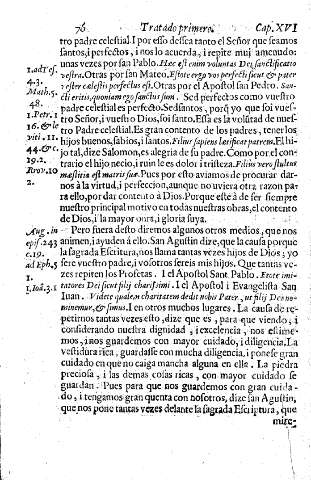 76 Tratado primero. Cap. XVI
tro padre celestial. I por esso dessea tanto el Señor que seamos
santos, i perfectos, i nos lo acuerda, i repite mui amenudo:
unas vezes por san Pablo. Hæc est enim voluntas Dei sanctificatio
vestra. Otras por san Mateo. Estote ergo vos perfecti sicut & pater
vester cælestis perfectus est. Otras por el Apostol san Pedro. San-
cti eritis, quoniam ego sanctus sum. Sed perfectos como vuestro
padre celestial es perfeto. Sed santos, porq̃ yo que soi vues-
tro Señor, i vuestro Dios, soi santo. Essa es la volũtad de nues-
tro Padre celestial. Es gran contento de los padres, tener los
hijos buenos, sabios, i santos. Filius sapiens lætificat patrem. El hi-
jo tal, dize Salomon, es alegria de su padre. Como por el con-
trario el hijo necio, i ruin le es dolor i tristeza. Filius vero stultus
mæstitia est matris suæ. Pues por esto aviamos de procurar dar-
nos à la virtud, i perfeccion, aunque no uviera otra razon pa
ra ello, por dar contento à Dios. Porque este à de ser siempre
nuestro principal motivo en todas nuestras obras, el contento
de Dios, i la mayor onra, i gloria suya.
Pero fuera desto diremos algunos otros medios, que nos
animen, i ayuden à ello. San Agustin dize, que la causa porque
la sagrada Escritura, nos llama tantas vezes hijos de Dios; yo
sere vuestro padre, i vosotros sereis mis hijos. Que tantas ve-
zes repiten los Profetas. I el Apostol Sant Pablo. Estote imi-
tatores Dei sicut filij charissimi. I el Apostol i Evangelista San
Iuan. Videte qualem charitatem dedit nobis Pater, ut filij Dei no-
minemur, & simus. I en otros muchos lugares. La causa de re-
petirnos tantas vezes esto, dize que es, para que viendo, i
considerando nuestra dignidad, i excelencia, nos estime-
mos, i nos guardemos con mayor cuidado, i diligencia. La
vestidura rica, guardasse con mucha diligencia, i ponese gran
cuidado en que no caiga mancha alguna en ella. La piedra
preciosa, i las demas cosas ricas, con mayor cuidado se
guardan. Pues para que nos guardemos con gran cuida-
do, i tengamos gran quenta con nosotros, dize san Agustin,
que nos pone tantas vezes delante la sagrada Escriptura, que
mire-
1. ad Tes.
4.3.
Math. 5.
48.
1. Petr. 1
16. & le
viti. 11.
44. & c.
19.2.
Prov. 10
2.
Aug. in
epist. 243
c. 19.
ad Eph. 5
1.
1. Ioã. 3.1